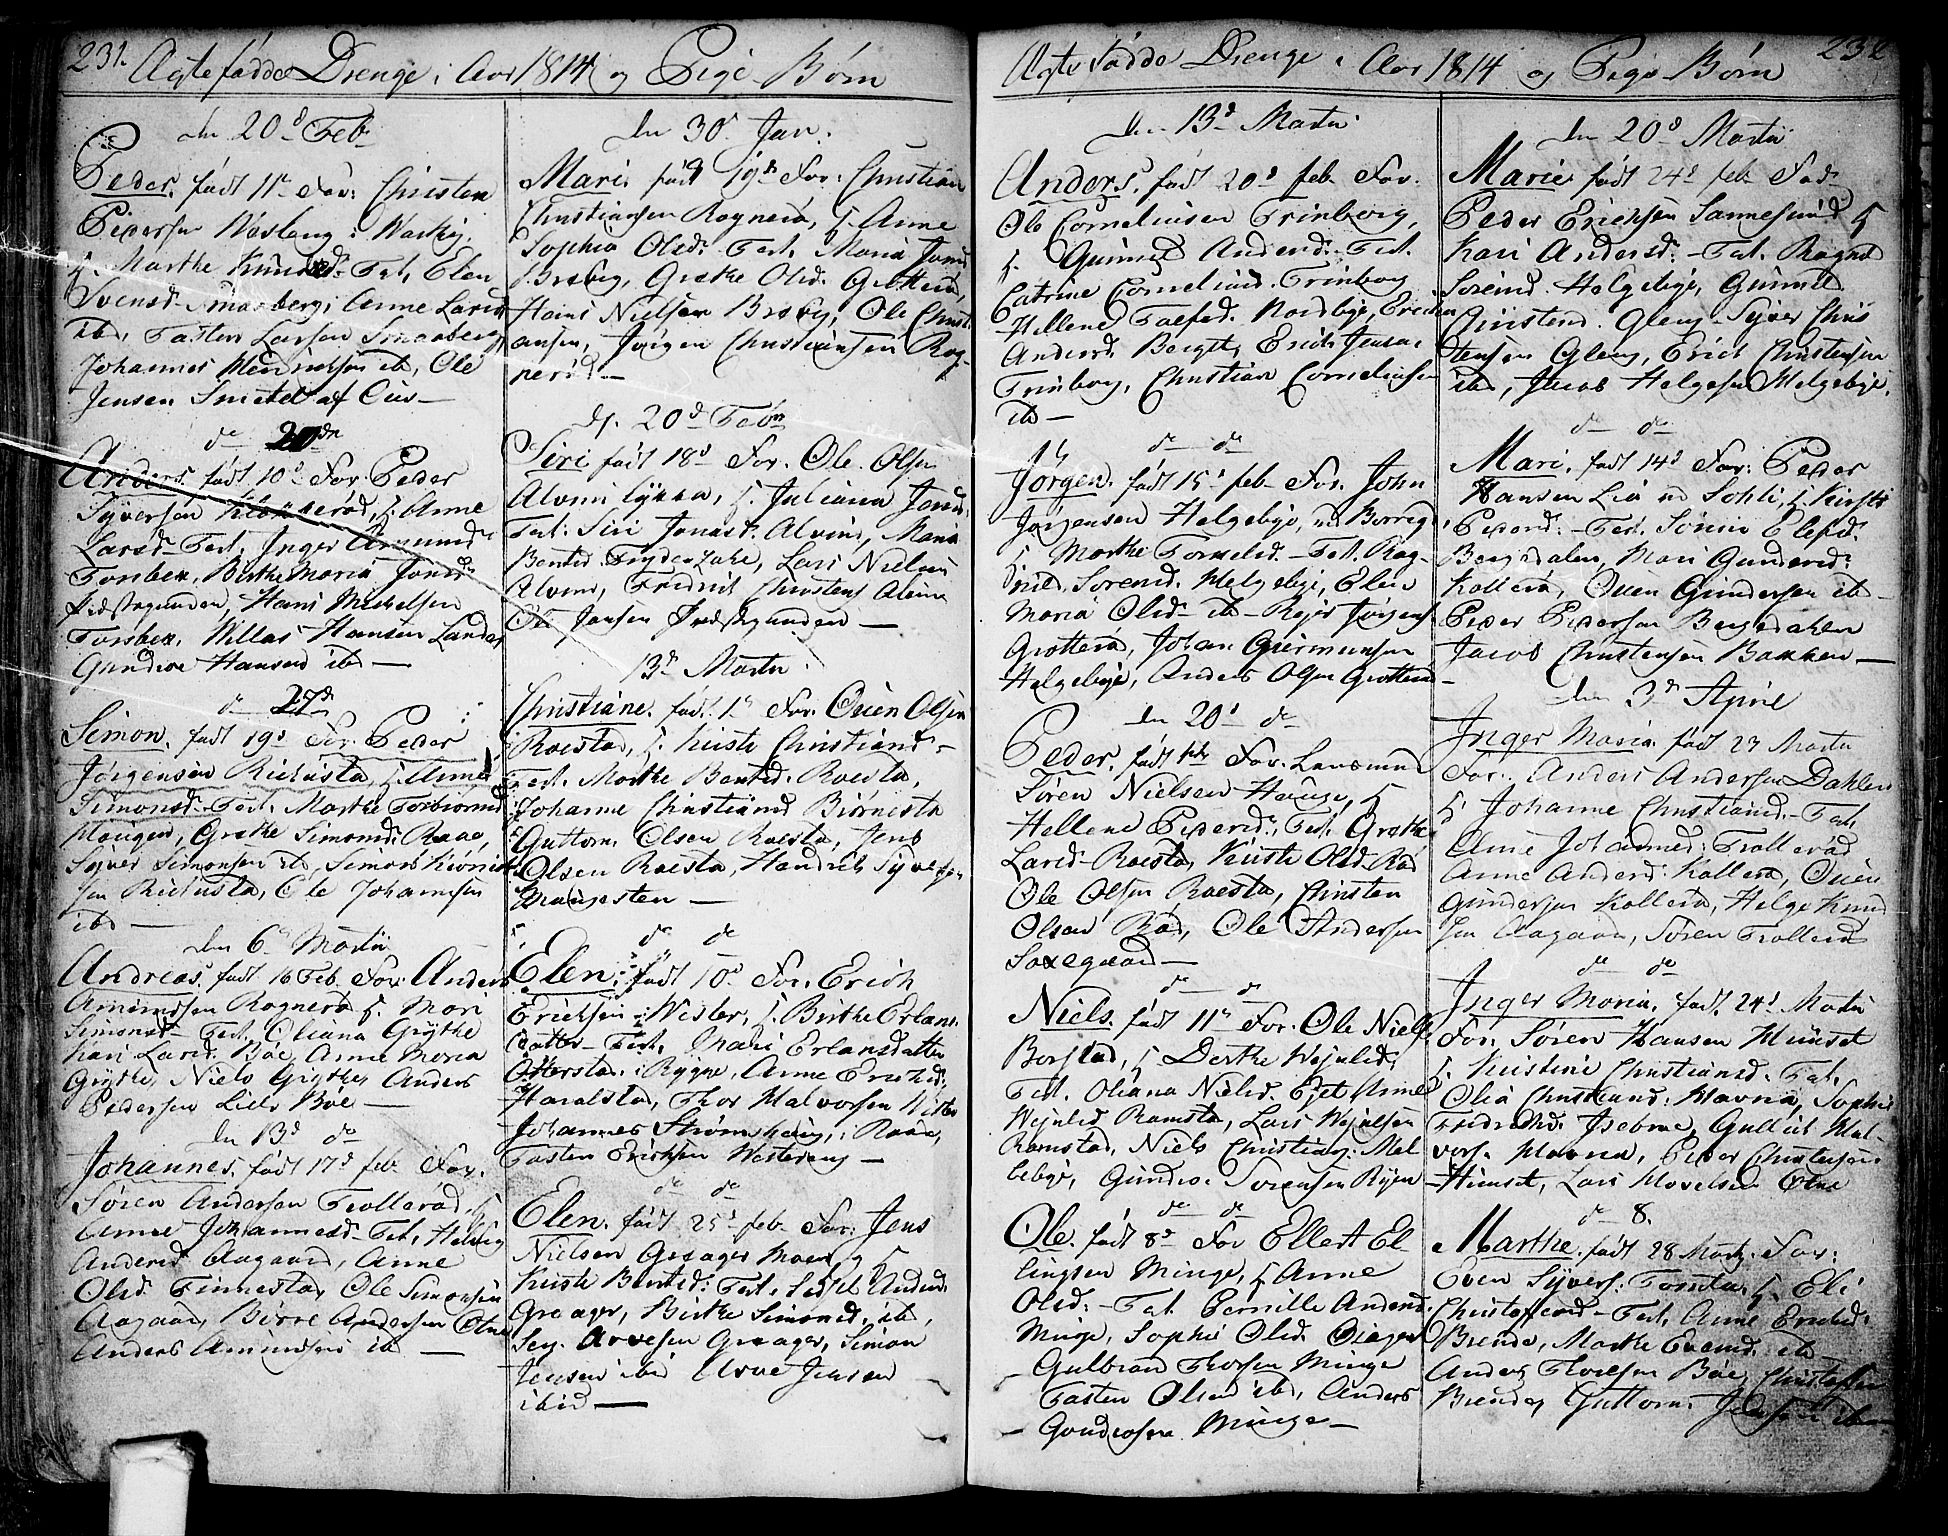 231. Ægtefødde Drenge i Aar 1814 og Pige Børn
den 20d Feb
Peder. født 11t For: Christen
Pedersen
Marthe Knudsd: Fat, Elen
Svensd. Smaaberg, Anne Larsd
ibd, Tasten Larsen Smaaberg
Johannes Henrichsen ib, Ole
Jensen Smedel af Ous
de 20de
Anders. født 10d For. Peder
Syversen Klokkerød, h. Anne
Larsd Fat. Inger Amund
Torsbek, Birthe Maria Jonsd
Hans Michelsen
Torsbek, Willas Hansen Landes
Gundroe Hansen ibd
de 27de
Simon. født 19d For. Peder
Jørgensen Kichusta, h. Anne
Simonsd Fat. Marthe Torbiørnsd
Haugen, Grethe Simonsd: Raae,
Syver Simonsen ib, Simon
sen Kichusta, Ole Johannsen
ibd
den 6te Martii
Andreas. født 16 Feb For: Anders
Amundsen Rognerø h. Mari
Simonsd Fat. Oliana Grythe
Kari Larsd. Bøe, Anne Maria
Grythe, Niels Grythe, Anders
Pedersen Liels Boe
den 13d de
Johannes. født 17d feb For.
Søren Andersen Trollerød, h
Anne Johannesd Fat, Helvig
Andersd Aagaard, Anne
Olsd Finnestad, Ole Simonsen
Aagaard, Børre Andersen Otne
Anders Amundsen ib
den 30d Jan.
Mari. født 19d For: Christian
Christiansen Rognerø, h. Anne
Sophia Olsd. Fat, Maria Jonsd
Broby, Grethe Olsd. Grotterød,
Hans Nielsen Broby, Ole Christi
ansen, Jørgen Christiansen Rog-
nerød
d. 20d Febr
Siri født 18d For. Ole Olsen
Alvimlykka, h. Juliana Jonsd.
Fat. Siri Jonasd. Alvim, Maria
Bentsd Lars Nielsen
Alvim, Fredrich Christens Alvim
Ole Jansen
13d Martii
Christiane. født 1t For. Ouen Olsen
Raesta, h. Kirste Christiansd
Fat. Marthe Bentsd. Raesta
Johanne Christiansd Biørnesta
Guttorm Olsen Raesta, Jens
Olsen Raesta, Hendrich Syversen
Haugesten
de de
Elen. født 10d For. Erich
Erichsen i Wister, h. Birthe Erlans-
datter Fat. Mari Erlansdatter
Otterstad i Rygge, Anne Erichsd.
Haralstad, Thor Halvorsen Wister
Johannes Strømshaug, i Raae,
Tasten Erichsen Westereng
de de
Elen. født 25d feb For. Jens
Nielsen Graager Moen, og h
Kirste Bentsd: Fat, Sidsel Andersd
Graager, Birthe Simonsd, ib,
Sey. Arvesen Graager, Simon
Jensen ibid Arve Jensen
ibid
Ægte fødde Drenge i Aar 1814 og Pige Børn 232
den 13d Martii
Anders. født 20d feb For.
Ole Corneliusen Trinborg,
h. Gunnel Andersd. Fat.
Catrine Corneliusd. Trinborg
Hellene Tolfsd. Nordbye,
Andersd Berget, Erich Jensen
Trinborg, Christian Corneliusen
ib
de de
Jørgen. født 15d feb For. John
Jørgensen Helgebye, ud Borreg
h Marthe Torneliusd. Fat. Rag-
nild Sorensd. Helgebye, Elen
Maria Olsd ib Rejer Jørgens
Grotterød, Johan Giermunsen
Helgebye, Anders Olsen Grotterød
den 20d de
Peder. født For. Lansmand
Søren Nielsen Hauge, h
Hellene Pedersd: Fat. Grethe
Larsd Raesta, Kirste Olsd. Rød
Ole Olsen Raesta, Christen
Olsen Rød, Ole Andersen
Saxegaard
de de
Niels. født 11t For. Ole Niels
Borstad, h Dorthe Wejulsd:
Fat. Oliana Nielsd. Anne
Wejulsd Ramsta, Lars Wejulsen
Ramstad, Niels Christians. Mel
lebye, Gundro Sørensen Ryen
de de
Ole. født 8d For Ellert El
lingsen Minge, h Anne
Olsd. Fat. Pernille Andersd.
Minge, Sophi Olsd. Dieger
Gulbran Thorsen Minge
Tasten Olsen ibd, Anders
Gundersen Minge
den 20d Martii
Marie født 24d feb Fad
Peder Erichsen Sannesund h
Kari Andersd. Fat. Ragnil
Sorensd. Helgebye, Gunnil
Christensd. Gleng Syver Chris
tensen Gleng, Erich Christensen
ibd, Jacob Helgesen Helgebye.
de de
Mari. født 14d For: Peder
Hansen Lia ud Sohli, h. Kirsti
Pedersd: Fat. Sønnie Elefsd.
Bergsdalen, Mari Gundersd:
Kollerø, Ouen Gundersen ib
Peder Pedersen Bergedahlen
Jacob Christensen Bakken
den 3d Aprie
Inger Maria født 23 Martii
For: Anders Andersen Dahlen
h. Johanne Christiansd. Fat.
Anne Johannesd: Trollerød
Anne Andersd: Kollerø, Ouen
Gundersen Kollerø, Helge Knud
sen Aagaard, Søren Trollerød
de de
Inger Maria. født. 24d Martii
For. Søren Hansen Hunset
h. Kirstine Christiansd. Fat.
Olia Christiansd. Havnø, Sophie
Fredrichsd. Isebroe, Gulluch Hal-
vors. Havnø, Peder Christensen
Hunset, Lars Otne
de 8.
Marthe. født 28 Marty For.
Even Syvers. Torsta, h. Eli
Christoffersd Fat, Anne Erichsd.
Brende, Marthe Evensd. ib
Anders Thoresen Bøe, Christoffer
Brende, Guttorm Jensen ibm